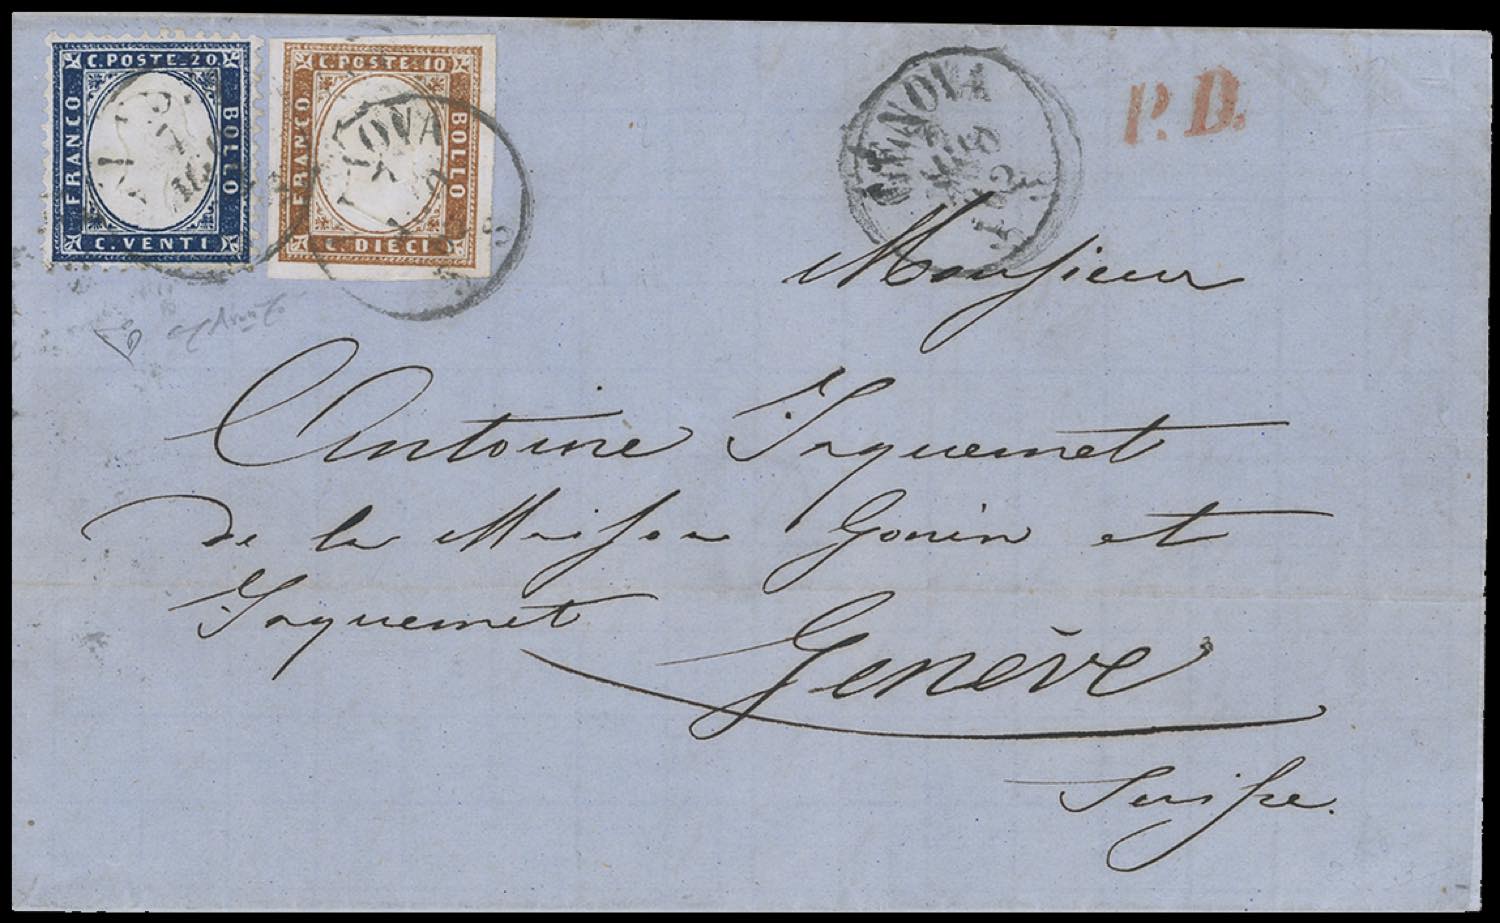 C. POSTE. 20
FRANCO
BOLLO
C. VENTI
C. POSTE. 10
FRANCO
BOLLO
C. DIECI
GENOVA
P.D.
Monsieur
Antoine Jaquemet
de la Maison Gonin et
Jaquemet
Genève
Suisse.